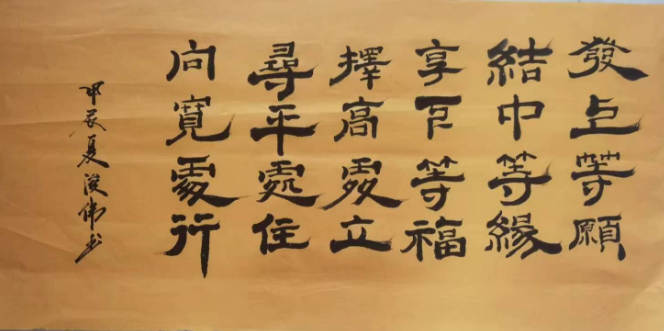 發上等願
結中等緣
享下等福
擇高處立
尋平處住
向寬處行
甲辰夏俊伟书